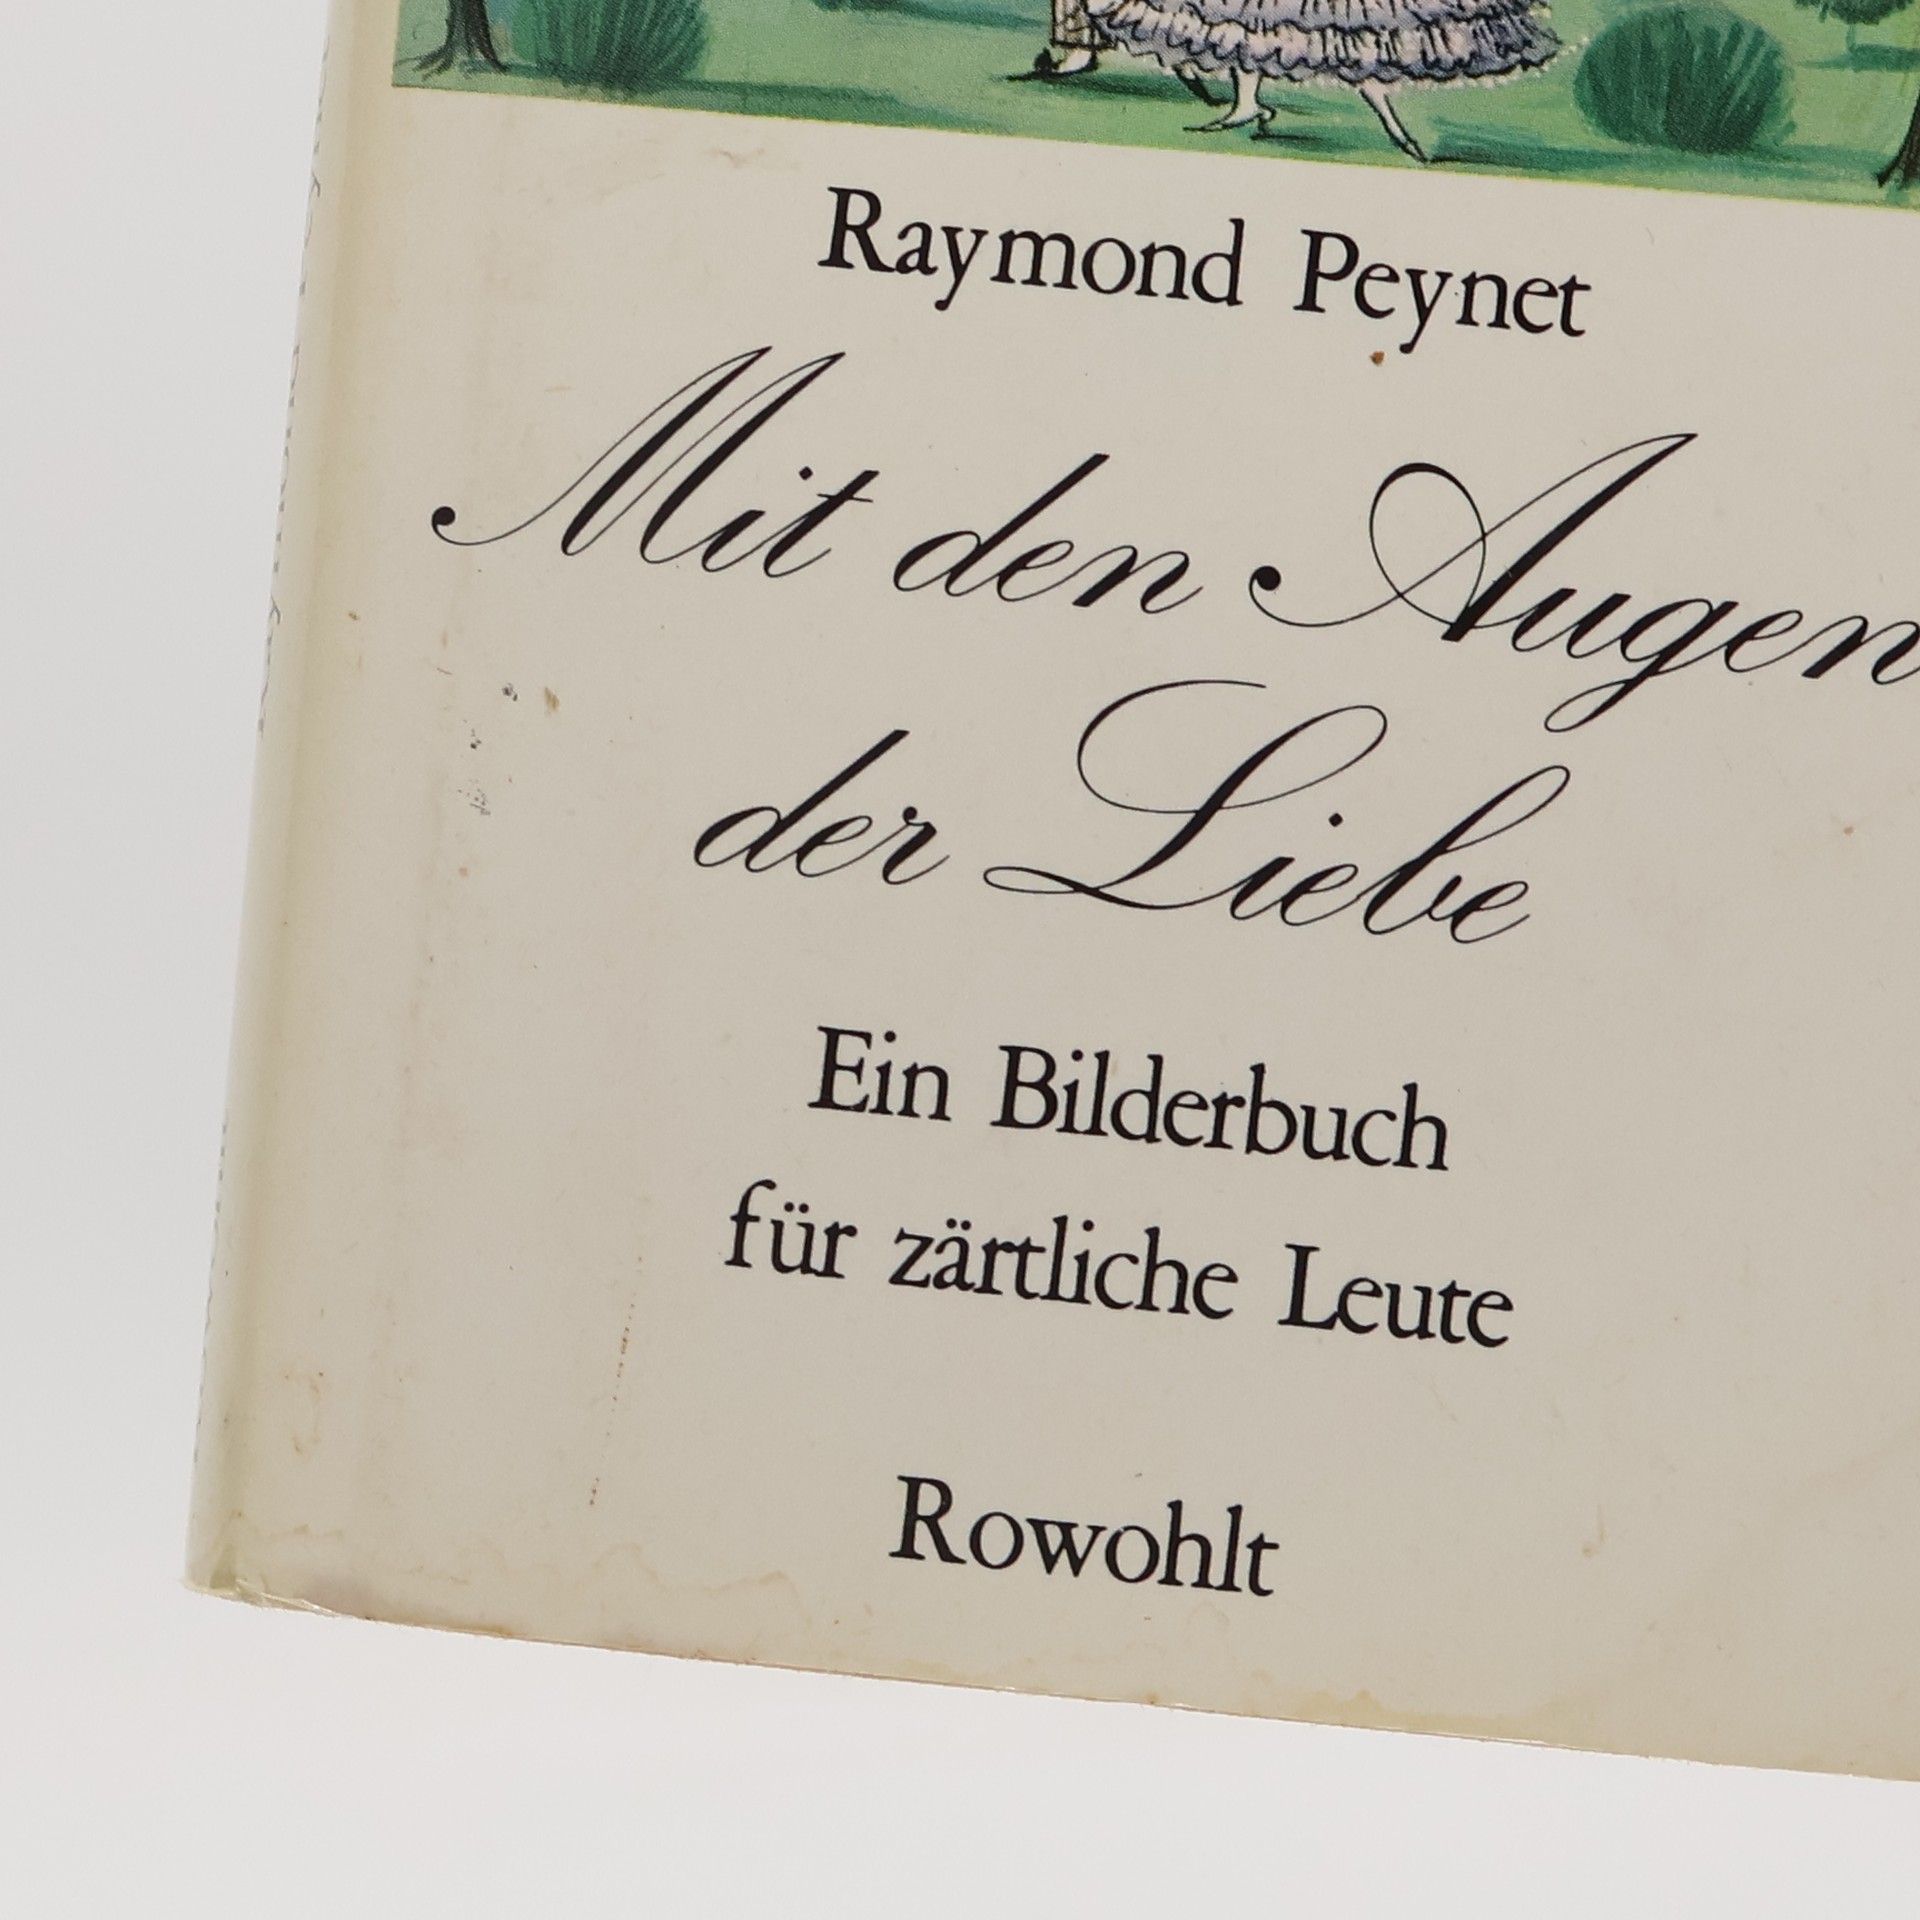 Raymond Peynet
Mit den Augen
der Liebe
Ein Bilderbuch
für zärtliche Leute
Rowohlt